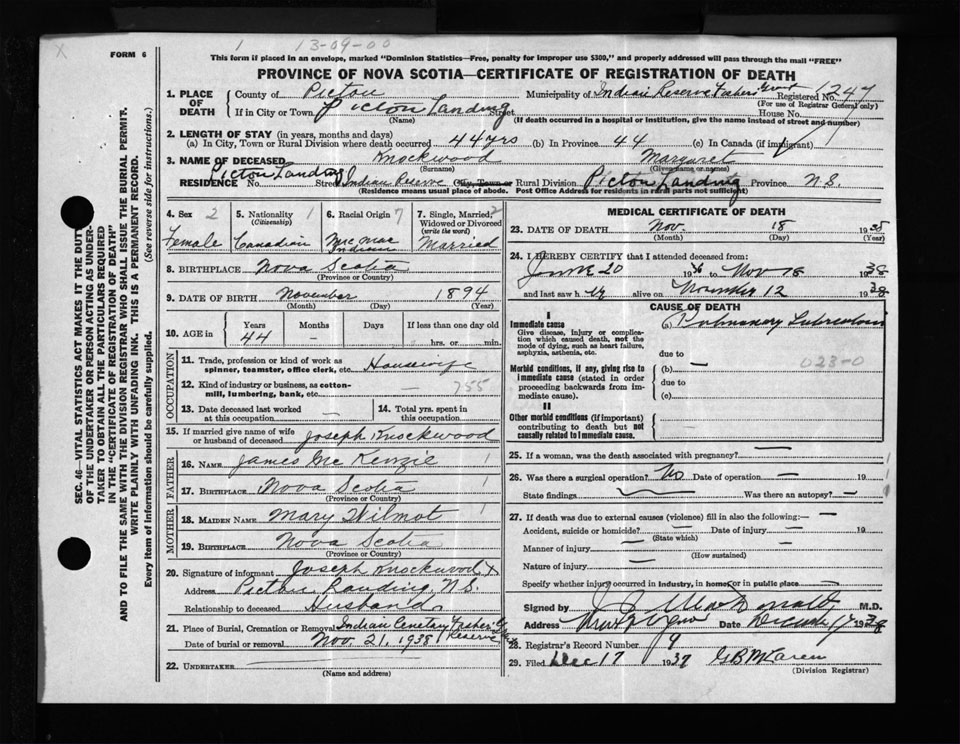 x
FORM 6
1 13-09-00
This form if placed in an envelope, marked "Dominion Statistics—Free, penalty for improper use $300," and properly addressed will pass through the mail "FREE"
PROVINCE OF NOVA SCOTIA—CERTIFICATE OF REGISTRATION OF DEATH
SEC. 46—VITAL STATISTICS ACT MAKES IT THE DUTY
OF THE UNDERTAKER OR PERSON ACTING AS UNDER-
TAKER TO OBTAIN ALL THE PARTICULARS REQUIRED
IN THE "CERTIFICATE OF REGISTRATION OF DEATH"
AND TO FILE THE SAME WITH THE DIVISION REGISTRAR WHO SHALL ISSUE THE BURIAL PERMIT.
WRITE PLAINLY WITH UNFADING INK. THIS IS A PERMANENT RECORD.
Every item of information should be carefully supplied. (See reverse side for instructions.)
1. PLACE OF DEATH County of Pictou Municipality of Indian Reserve Fishers Grant Registered No. 1247
(For use of Registrar General only)
If in City or Town Pictou Landing Street House No.
(Name) (If death occurred in a hospital or institution, give the name instead of street and number)
2. LENGTH OF STAY (in years, months and days)
(a) In City, Town or Rural Division where death occurred 44 yrs (b) In Province 44 (c) In Canada (if immigrant)
3. NAME OF DECEASED Knockwood Margaret
(Surname) (Given name or names)
RESIDENCE No. Pictou Landing Street Indian Reserve City, Town or Rural Division Pictou Landing Province N.S.
(Residence means usual place of abode. Post Office Address for residents in rural parts not sufficient)
4. Sex 2 Female
5. Nationality 1 (Citizenship) Canadian
6. Racial Origin 7 Mic Mac Indian
7. Single, Married, Widowed or Divorced (write the word) 2 Married
8. BIRTHPLACE Nova Scotia
(Province or Country)
9. DATE OF BIRTH November 1894
(Month) (Day) (Year)
10. AGE in Years 44 Months — Days If less than one day old hrs. or min.
OCCUPATION
11. Trade, profession or kind of work as spinner, teamster, office clerk, etc. Housewife
12. Kind of industry or business, as cotton-mill, lumbering, bank, etc. — 755
13. Date deceased last worked at this occupation —
14. Total yrs. spent in this occupation
15. If married give name of wife or husband of deceased Joseph Knockwood
FATHER
16. NAME James McKenzie 1
17. BIRTHPLACE Nova Scotia 1
(Province or Country)
MOTHER
18. MAIDEN NAME Mary Wilmot 1
19. BIRTHPLACE Nova Scotia
(Province or Country)
20. Signature of informant Joseph Knockwood X
Address Pictou Landing N.S.
Relationship to deceased Husband
21. Place of Burial, Cremation or Removal Indian Cemetery Fisher's Reserve
Date of burial or removal Nov. 21, 1938
22. UNDERTAKER
(Name and address)
MEDICAL CERTIFICATE OF DEATH
23. DATE OF DEATH Nov. 18 1938
(Month) (Day) (Year)
24. I HEREBY CERTIFY that I attended deceased from:
June 20 1936 to Nov 18 1938
and last saw her alive on November 12 1938
CAUSE OF DEATH
I
Immediate cause (a) Pulmonary Tuberculosis
Give disease, injury or complication which caused death, not the mode of dying, such as heart failure, asphyxia, asthenia, etc.
due to —
Morbid conditions, if any, giving rise to immediate cause (stated in order proceeding backwards from immediate cause). (b) — 023-0
due to
(c)
II
Other morbid conditions (if important) contributing to death but not causally related to immediate cause.
25. If a woman, was the death associated with pregnancy? — 1
26. Was there a surgical operation? No Date of operation — 1
State findings Was there an autopsy? —
27. If death was due to external causes (violence) fill in also the following:—
Accident, suicide or homicide? — Date of injury — 19
(State which)
Manner of injury —
(How sustained)
Nature of injury —
Specify whether injury occurred in industry, in home, or in public place —
Signed by MacDonald M.D.
Address Date 1938
28. Registrar's Record Number 4
29. Filed Dec 17 1937
(Division Registrar)